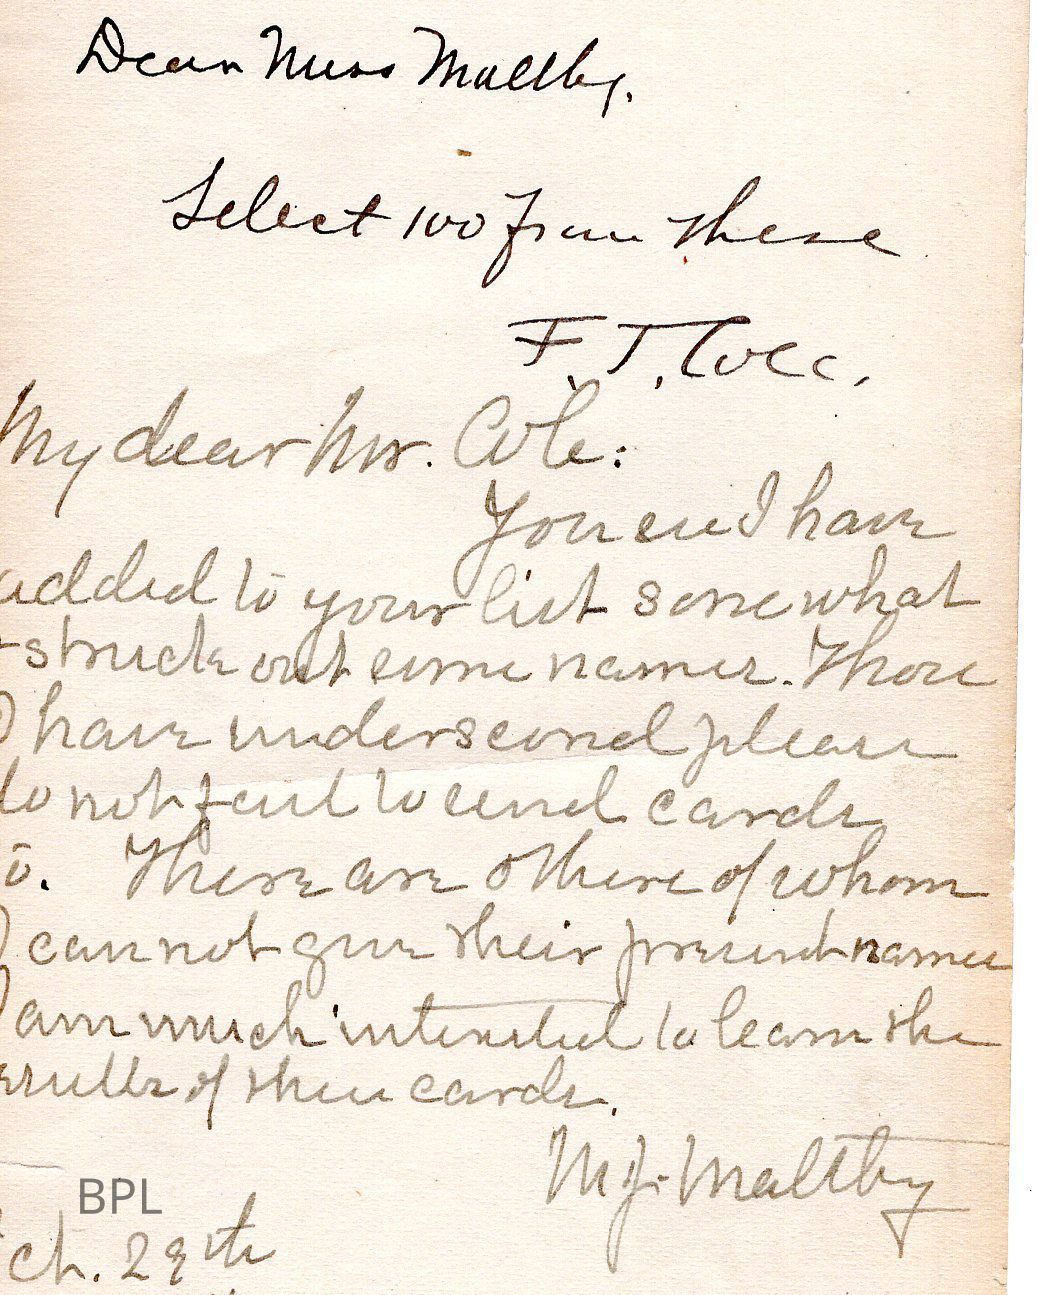 Dear Miss Maltby,
Select 100 from these
F. T. Cole.
My dear Mr. Cole:
You see I have
added to your list somewhat
+ struck out some names. Those
I have underscored please
do not fail to send cards
to. There are others of whom
I cannot give their present names
I am much interested to learn the
results of these cards.
M. J. Maltby
BPL
ch. 28th